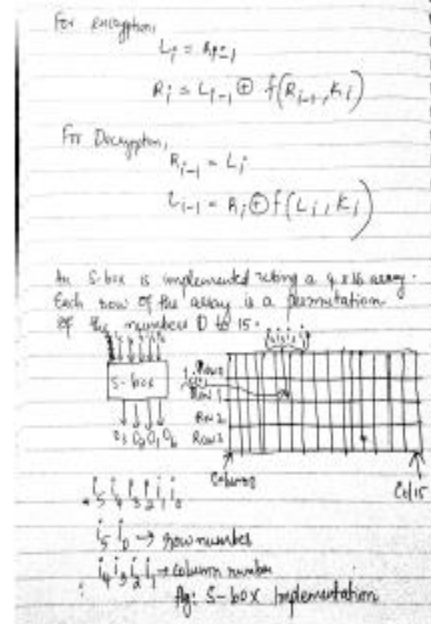 For encryption,
Li = Ri-1
Ri = Li-1 ⊕ f(Ri-1, Ki)
For Decryption,
Ri-1 = Li
Li-1 = Ri ⊕ f(Li, Ki)
An S-box is implemented using a 4 x 16 array.
Each row of the array is a permutation
of the numbers 0 to 15.
S-box
Row 0
Row 1
Row 2
Row 3
O3 O2 O1 O0
Column 0
Col 15
i5 i4 i3 i2 i1 i0
i5 i0 → row number
i4 i3 i2 i1 → column number
Fig: S-box Implementation